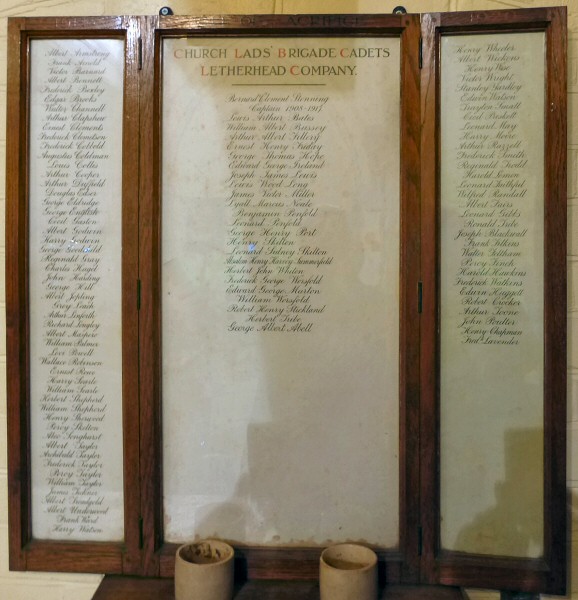 SACRIFICE
CHURCH LADS' BRIGADE CADETS
LETHERHEAD COMPANY.
Albert Armstrong
Frank Arnold
Victor Barnard
Albert Bennett
Frederick Boxley
Edgar Brooks
Walter Channell
Arthur Clapshaw
Ernest Clements
Frederick Clemetson
Frederick Cobbold
Augustus Coldman
Louis Collis
Arthur Cooper
Arthur Duffield
Douglas
George Eldridge
George English
Cecil Gaston
Albert Godwin
Harry Godwin
George Goodchild
Reginald Gray
Charles Hagel
John Harding
George Hill
Albert Jopling
Leach
Arthur Linforth
Richard Longley
Albert
William Palmer
Levi Powell
Wallace Robinson
Ernest Rowe
Harry Searle
William Searle
Herbert Shepherd
William Shepherd
Henry Sherwood
Percy Skelton
Alec Songhurst
Albert Taylor
Archibald Taylor
Frederick Taylor
Percy Taylor
William Taylor
James Tickner
Albert
Albert Underwood
Frank Ward
Harry Watson
Bernard Clement Benning
Captain 1908-1917
Lewis Arthur Bates
William Albert Bussey
Arthur Albert Fillery
Ernest Henry Friday
George Thomas Hope
Edward George Ireland
Joseph James Lewis
Lewis Wood Long
James Victor Miller
Lyall Marcus Neale
Benjamin Penfold
Leonard Penfold
George Henry Port
Henry Skilton
Leonard Sidney Skilton
Henry Harvey Summersfield
Herbert John Whiten
Frederick George Worsfold
Edward George Marten
William Worsfold
Robert Henry Stickland
Herbert Tribe
George Albert Abell
Henry Wheeler
Albert Wickens
Henry Wise
Victor Wright
Stanley Yardley
Edwin Watson
Smalt
Cecil Baskett
Leonard May
Harry Moore
Arthur Buzzell
Frederick Smith
Reginald
Harold Simon
Leonard Faithful
Wilfred Randall
Albert Fairs
Leonard Gibbs
Ronald Tribe
Joseph Blackwell
Frank Filkins
Walter Stillham
Percy Finch
Harold Hawkins
Frederick Watkins
Edwin Hoggett
Robert Crocker
Arthur Toone
John Poulter
Henry Chapman
Fred. Lavender